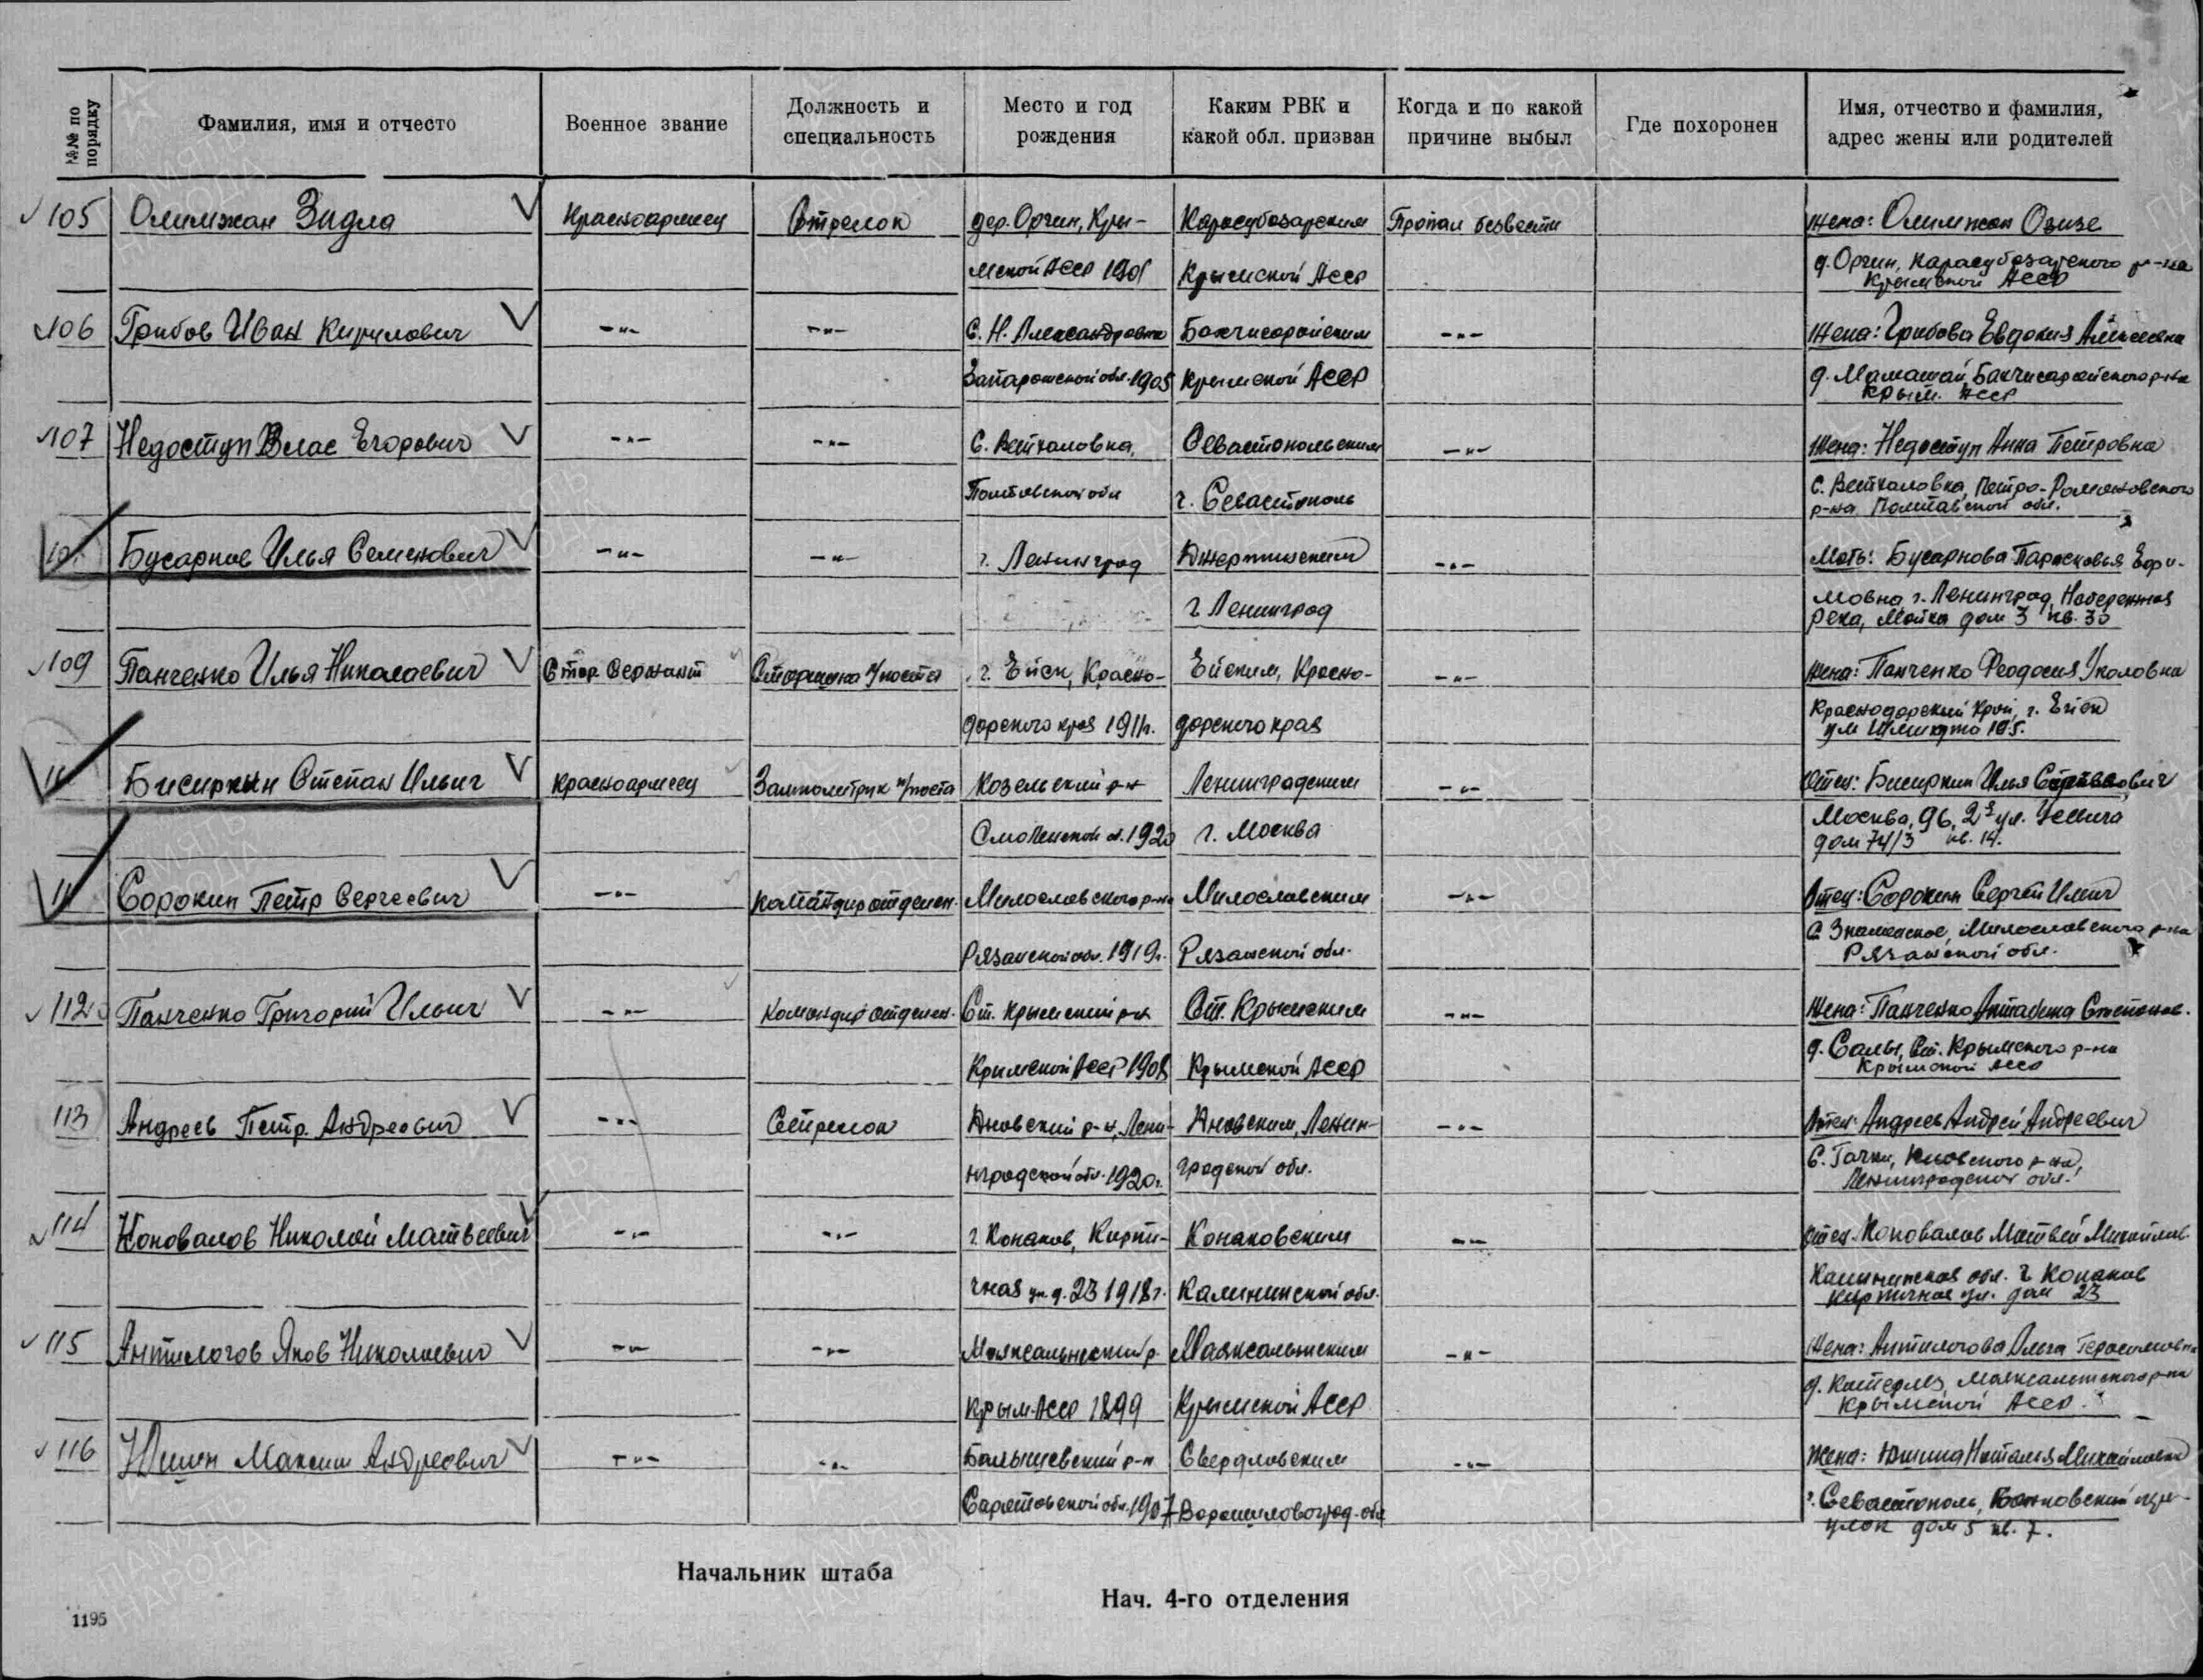 №№ по порядку
Фамилия, имя и отчесто
Военное звание
Должность и специальность
Место и год рождения
Каким РВК и какой обл. призван
Когда и по какой причине выбыл
Где похоронен
Имя, отчество и фамилия, адрес жены или родителей
105 Олимжан Зидла Красноармеец Стрелок дер. Оргин, Кры- Карасубазарским Пропал безвести жена: Олимжан
мской АССР 1901 Крымской АССР д. Оргин, Карасубазарского р-на
Крымской АССР
106 Грибов Иван Кирилович -"- -"- С. Н. Александровка Бахчисарайским -"- Жена: Грибова Евдокия Алексеевна
Запарожской обл. 1905 Крымской АССР д. Мамашай, Бахчисарайского р-на
Крым. АССР
107 Недоступ Влас Егорович -"- -"- С. Веткаловка, Севастопольским -"- Жена: Недоступ Анна Петровна
Полтавской обл г. Севастополь С. Веткаловка, Петро-Романовского
р-на Полтавской обл.
Бусарнов Илья Семенович -"- -"- г. Ленинград Дзержинским -"- Мать: Бусарнова Парасковья Ефи-
г. Ленинград мовна г. Ленинград, Набережная
река, Мойка дом 3 кв. 30
109 Панченко Илья Николаевич Стар. Сержант Старшина п/поста г. Ейск, Красно- Ейским, Красно- -"- жена: Панченко Феодосия
дарского края 1911г. дарского края Краснодарский край, г. Ейск
ул Шмидта 195.
11 Бисиркин Степан Ильич Красноармеец Замполитрук п/поста Козельский р-н Ленинградским -"- Отец: Бисиркин Илья
Смоленской о. 1920 г. Москва Москва, 96, 2я ул.
дом 74/3 кв. 14.
11 Сорокин Петр Сергеевич -"- командир отделен. Милославского р-на Милославским -"- Отец: Сорокин Сергей Ильич
Рязанской обл. 1919г. Рязанской обл. С. Знаменское, Милославского р-на
Рязанской обл.
112 Панченко Григорий Ильич -"- Командир отделен. Ст. Крымский р-н Ст. Крымским -"- Жена: Панченко Степанов.
Крымской АССР 1908 Крымской АССР д. Салы, Ст. Крымского р-на
Крымской АССР
113 Андреев Петр. Андреевич -"- Стрелок Дновский р-н, Лени- Дновским, Ленин- -"- Отец: Андреев Андрей Андреевич
нградской обл. 1920г. градской обл. С. Гачки, Дновского р-на,
Ленинградской обл.
114 Коновалов Николай Матвеевич -"- -"- г. Конаков, Кирпи- Конаковским -"- Отец. Коновалов Матвей Михайлов.
чная ул. д. 23 1918г. Калининской обл. Калининская обл. г. Конаков
Кирпичная ул. дом 23
115 Антилогов Яков Николаевич -"- -"- Маяксальнский р Маяксальнским -"- Жена: Антилогова Ольга Герасимовна
Крым. АССР 1899 Крымской АССР д. Маяксальнского р-на
Крымской АССР.
116 Юшин Максим Андреевич -"- -"- Балышевский р-н Свердловским -"- Жена: Юшина Наталья Михайловна
Саратовской обл. 1907 Ворошиловоград. обл г. Севастополь, пере-
улок дом 5 кв. 7.
Начальник штаба
Нач. 4-го отделения
1195
ПАМЯТЬ НАРОДА